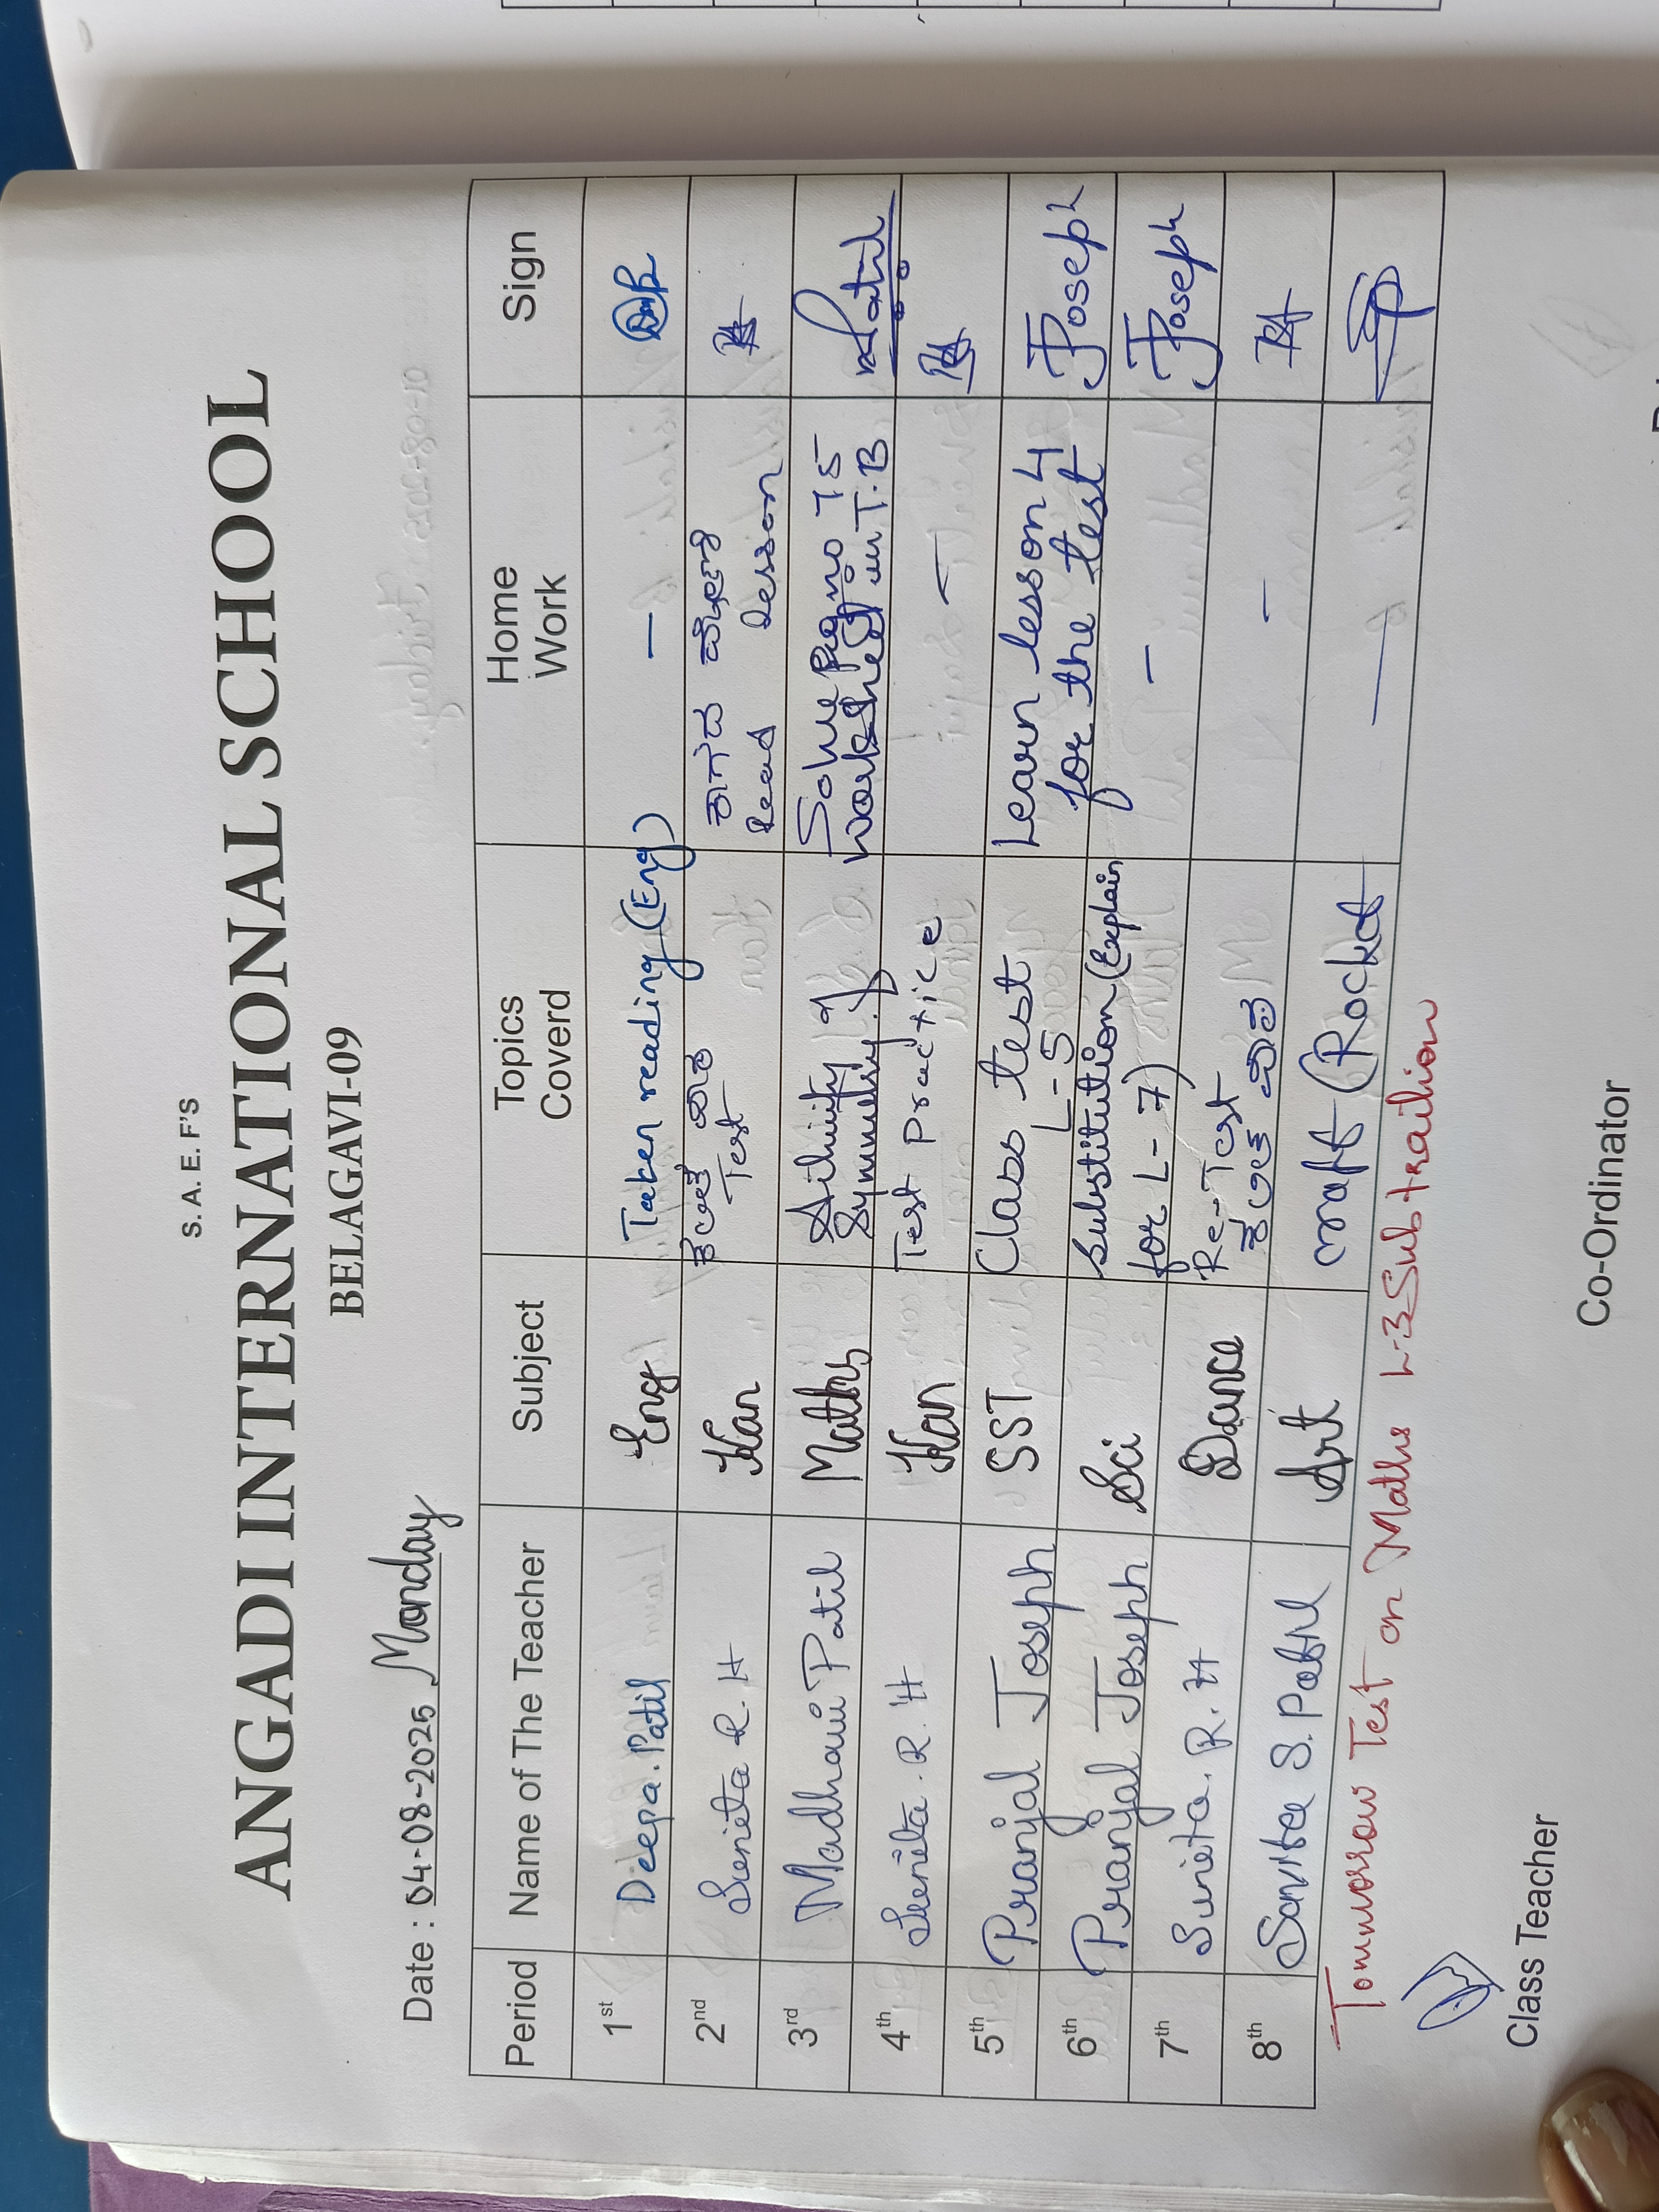 S. A. E. F'S
ANGADI INTERNATIONAL SCHOOL
BELAGAVI-09
Date : 04-08-2025 Monday
Period Name of The Teacher Subject Topics Coverd Home Work Sign
1st Deepa. Patil Eng Taken reading (Eng) —
2nd Sunita R. H Kan ಪಾಠ Test ಕಾಗದ Read lesson
3rd Madhavi Patil Maths Activity of Symmetry. Solve Pg no 75 worksheet in T.B Patil
4th Sunita. R. H Kan Test Practice —
5th Pranjal Joseph SST Class test L-5 Learn lesson 4 for the test Joseph
6th Pranjal Joseph Sci Substitution (Explain for L-7) - Joseph
7th Sunita. R. H Dance Re-Test ಪಾಠ -
8th Savita S. Patil Art craft (Rocket —
Tommorrow Test on Maths L-3 Subtraition
Class Teacher Co-Ordinator